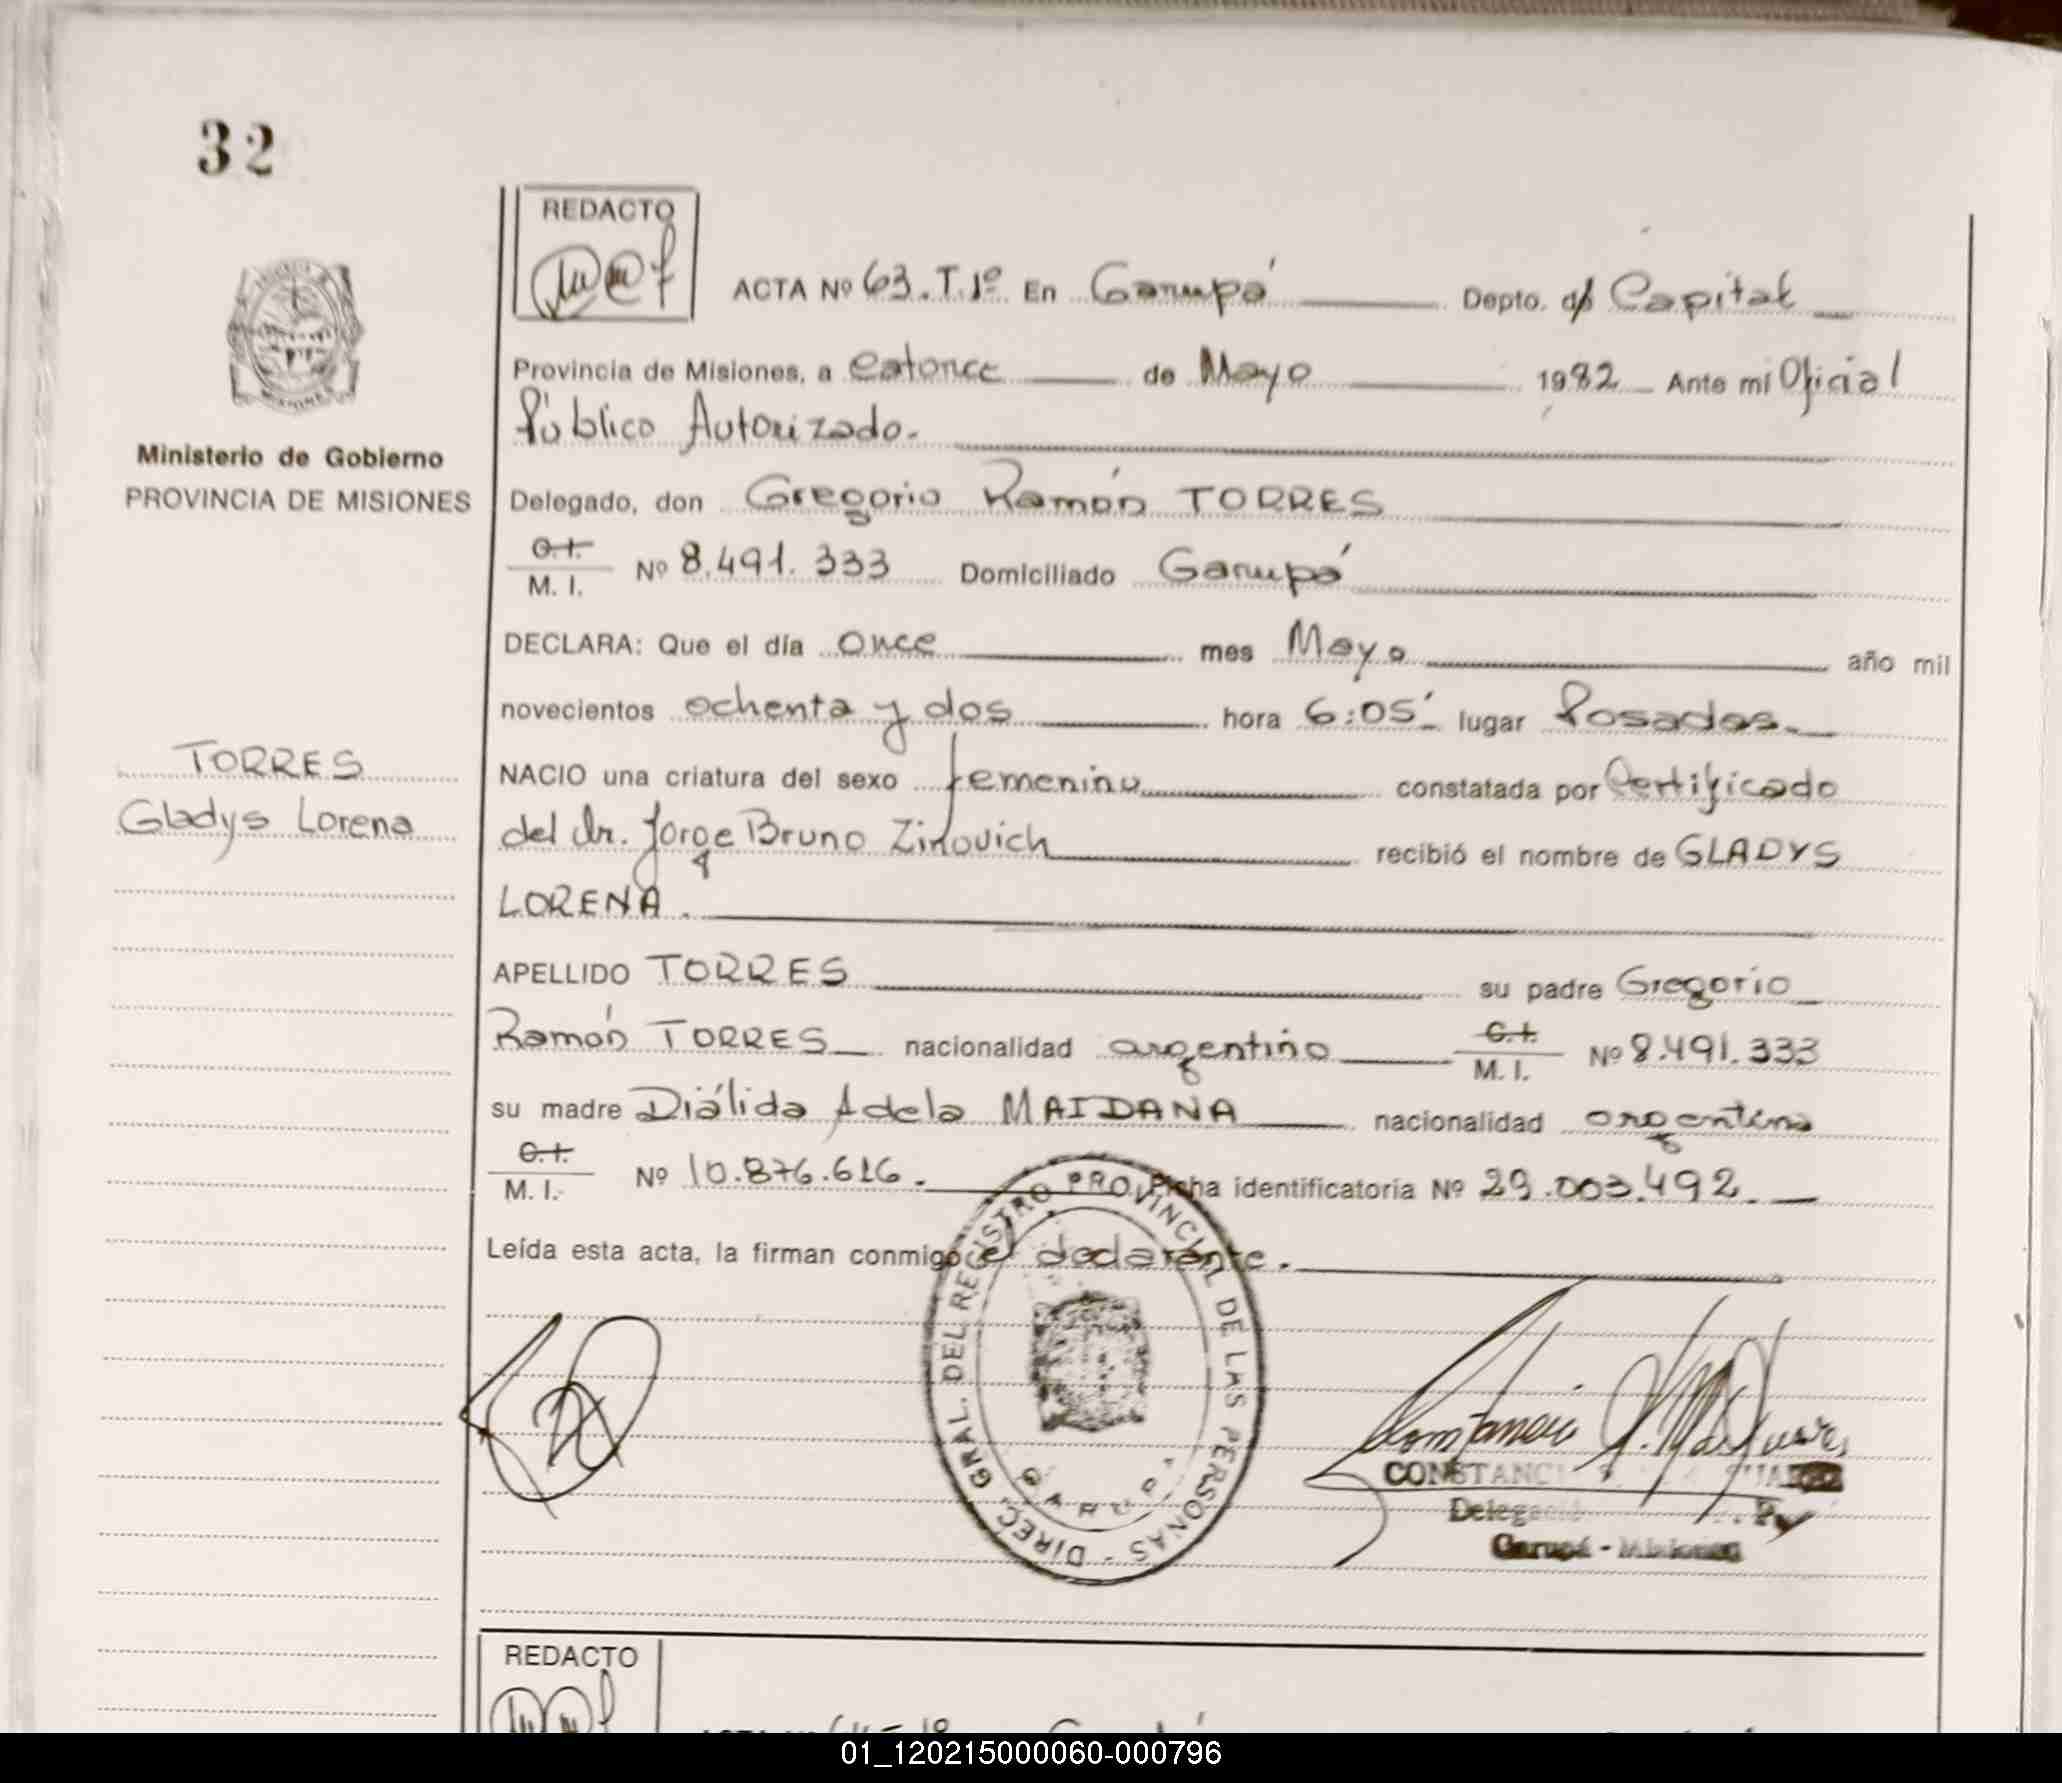 32
REDACTO
ACTA Nº 63.T.1º En Garupá Depto. de Capital
Provincia de Misiones, a catorce de Mayo 1982 Ante mí Oficial
Público Autorizado.
Ministerio de Gobierno
PROVINCIA DE MISIONES
Delegado, don Gregorio Ramón TORRES
C.I.
M. I. Nº 8.491.333 Domiciliado Garupá
DECLARA: Que el día once mes Mayo año mil
novecientos ochenta y dos hora 6:05' lugar Posadas.
TORRES
Gladys Lorena
NACIO una criatura del sexo femenino constatada por Certificado
del dr. Jorge Bruno Zinovich recibió el nombre de GLADYS
LORENA.
APELLIDO TORRES su padre Gregorio
Ramón TORRES nacionalidad argentino C.I. M. I. Nº 8.491.333
su madre Diálida Adela MAIDANA nacionalidad argentina
C.I.
M. I. Nº 10.876.616. Ficha identificatoria Nº 29.003.492.
Leída esta acta, la firman conmigo el declarante.
DIREC. GRAL. DEL REGISTRO PROVINCIAL DE LAS PERSONAS -
GARUPA
CONSTANCI
Delegaci
Garupá - Misiones
REDACTO
01_120215000060-000796